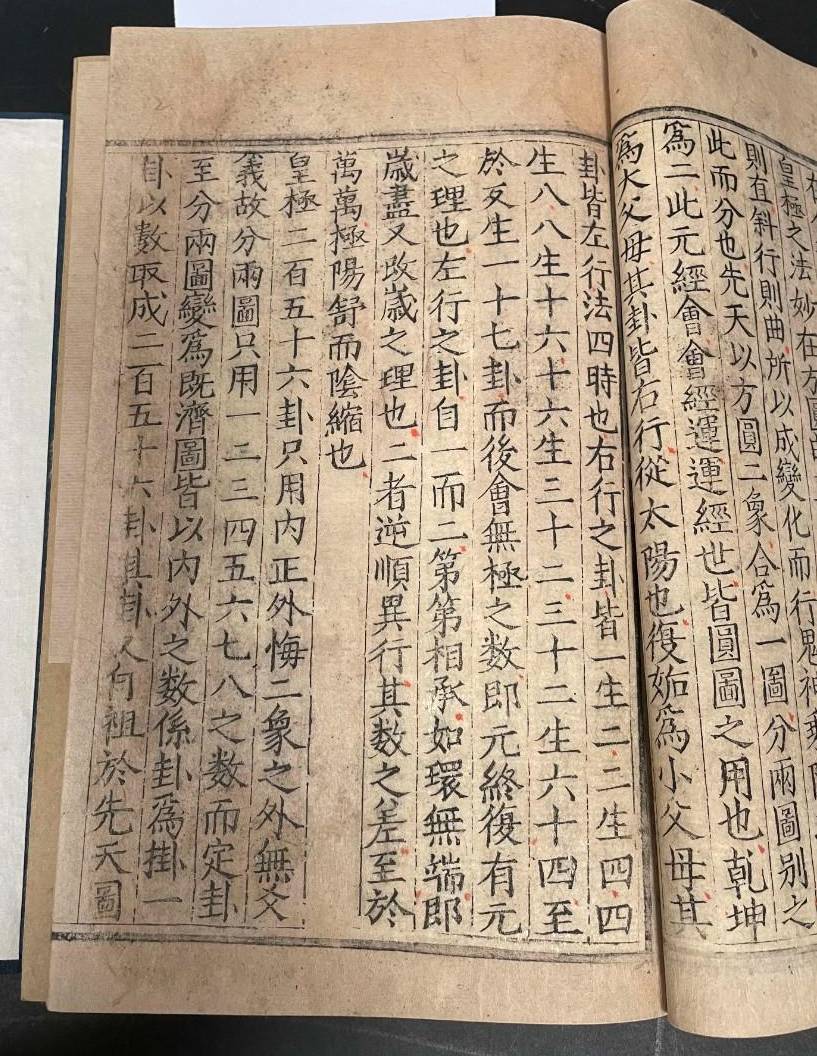 皇極之法妙在方圓
則直斜行則曲所以成變化而行鬼神
此而分也先天以方圓二象合爲一圖分兩圖别之
爲二此元經會會經運運經世皆圓圖之用也乾坤
爲大父母其卦皆右行從太陽也復姤爲小父母其
卦皆左行法四時也右行之卦皆一生二二生四四
生八八生十六十六生三十二三十二生六十四至
於亥生一十七卦而後會無極之数即元終復有元
之理也左行之卦自一而二第第相承如環無端即
歲盡又改歲之理也二者逆順異行其数之差至於
萬萬極陽舒而陰縮也
皇極二百五十六卦只用内正外悔二象之外無爻
義故分兩圖只用一二三四五六七八之数而定卦
至分兩圖變爲既濟圖皆以内外之数係卦爲掛一
卦以數取成二百五十六卦其卦又何祖於先天圖